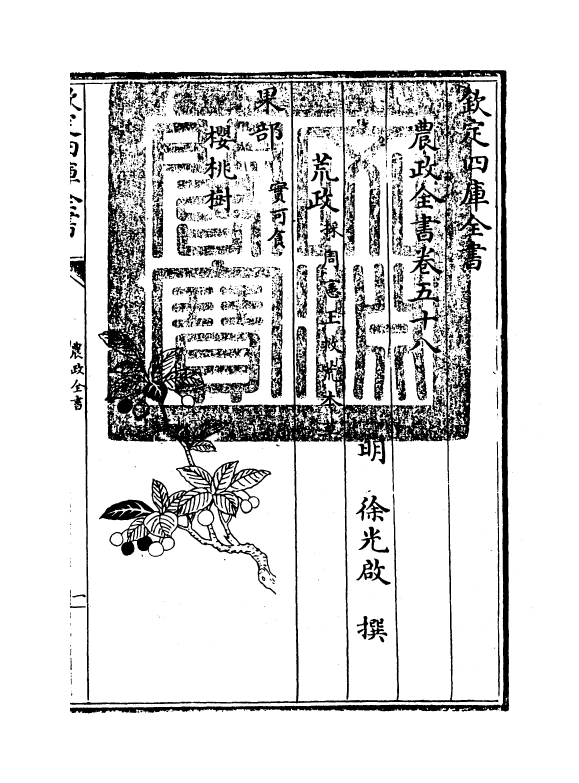 欽定四庫全書
農政全書卷五十八
明 徐光啟 撰
荒政 採周憲王救荒本草
果部 實可食
櫻桃樹
欽定四庫全書
農政全書
一